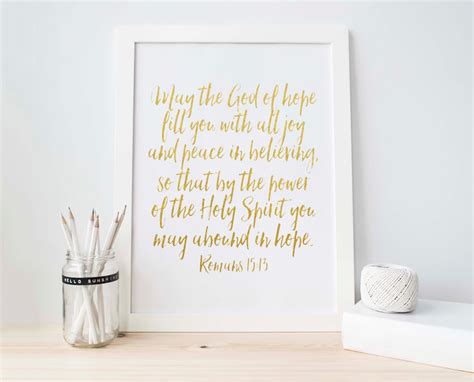 May the God of hope
fill you with all joy
and peace in believing,
so that by the power
of the Holy Spirit you
may abound in hope.
Romans 15:13
HELLO SUNSHINE